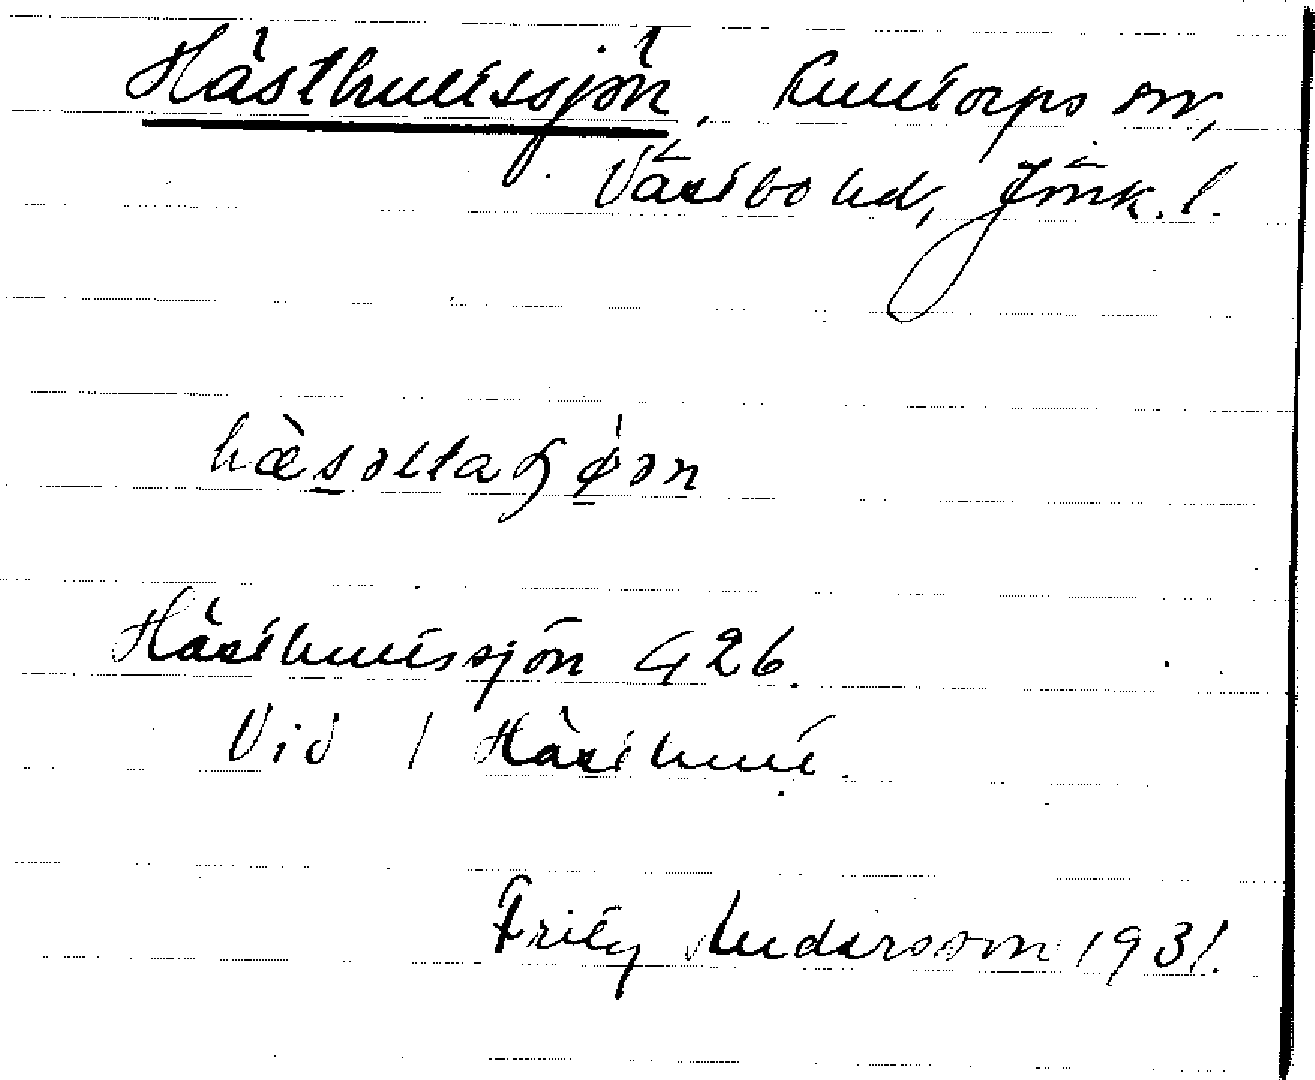 Hästhultssjön, Kulltorps sn,
Västbo hd, Jönk. l.
Hästhultssjön 426.
Vid 1 Hästhult.
Fritz Andersson 1931.